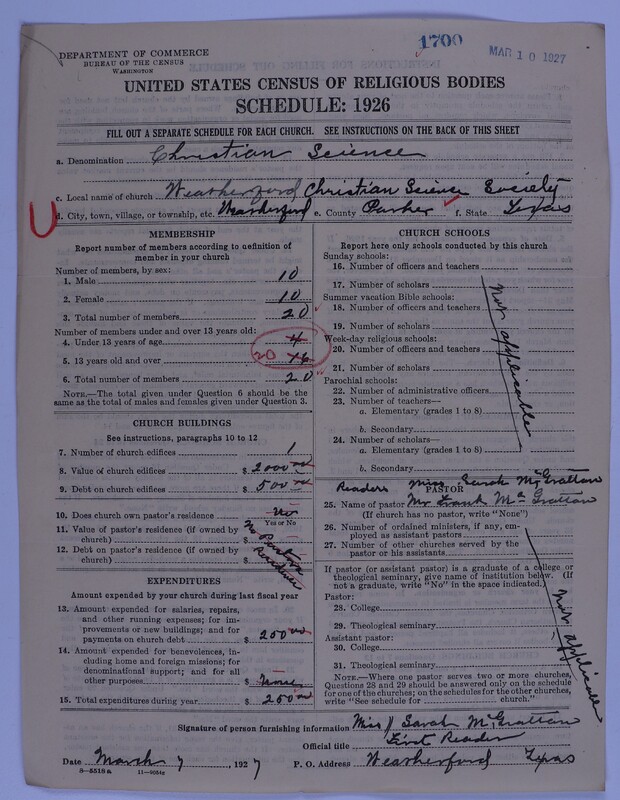 1700
MAR 10 1927
DEPARTMENT OF COMMERCE
BUREAU OF THE CENSUS
WASHINGTON
UNITED STATES CENSUS OF RELIGIOUS BODIES
SCHEDULE: 1926
FILL OUT A SEPARATE SCHEDULE FOR EACH CHURCH. SEE INSTRUCTIONS ON THE BACK OF THIS SHEET
a. Denomination Christian Science
c. Local name of church Weatherford Christian Science Society
d. City, town, village, or township, etc. Weatherford e. County Parker f. State Texas
MEMBERSHIP
Report number of members according to definition of
member in your church
Number of members, by sex:
1. Male 10
2. Female 10
3. Total number of members 20
Number of members under and over 13 years old:
4. Under 13 years of age 4
5. 13 years old and over 20 16
6. Total number of members 20
NOTE.—The total given under Question 6 should be
same as the total of males and females given under Question 3.
CHURCH BUILDINGS
See instructions, paragraphs 10 to 12
7. Number of church edifices 1
8. Value of church edifices $ 2000 00
9. Debt on church edifices $ 500 00
10. Does church own pastor's residence? No
Yes or No
11. Value of pastor's residence (if owned by
church) $
12. Debt on pastor's residence (if owned by
church) $
No Pastors
Residence
EXPENDITURES
Amount expended by your church during last fiscal year
13. Amount expended for salaries, repairs,
and other running expenses; for im-
provements or new buildings; and for
payments on church debt $ 250 00
14. Amount expended for benevolences, in-
cluding home and foreign missions; for
denominational support; and for all
other purposes $ None
15. Total expenditures during year $ 250 00
CHURCH SCHOOLS
Report here only schools conducted by this church
Sunday schools:
16. Number of officers and teachers
17. Number of scholars
Summer vacation Bible schools:
18. Number of officers and teachers
19. Number of scholars
Week-day religious schools:
20. Number of officers and teachers
21. Number of scholars
Parochial schools:
22. Number of administrative officers
23. Number of teachers—
a. Elementary (grades 1 to 8)
b. Secondary
24. Number of scholars—
a. Elementary (grades 1 to 8)
b. Secondary
Not applicable
Readers Miss Sarah McGrattan
PASTOR
25. Name of pastor Mr Frank McGrattan
(If church has no pastor, write "None")
26. Number of ordained ministers, if any, em-
ployed as assistant pastors
27. Number of other churches served by the
pastor or his assistants
If pastor (or assistant pastor) is a graduate of a college or
theological seminary, give name of institution below. (If
not a graduate, write "No" in the space indicated.)
Pastor:
28. College
29. Theological seminary
Assistant pastor:
30. College
31. Theological seminary
Not applicable
NOTE.—Where one pastor serves two or more churches,
Questions 28 and 29 should be answered only on the schedule
for one of the churches; on the schedules for the other churches,
write "See schedule for church."
Signature of person furnishing information Miss Sarah McGrattan
Official title First Reader
Date March 7, 1927 P. O. Address Weatherford Texas
8—5518a 11—9054a